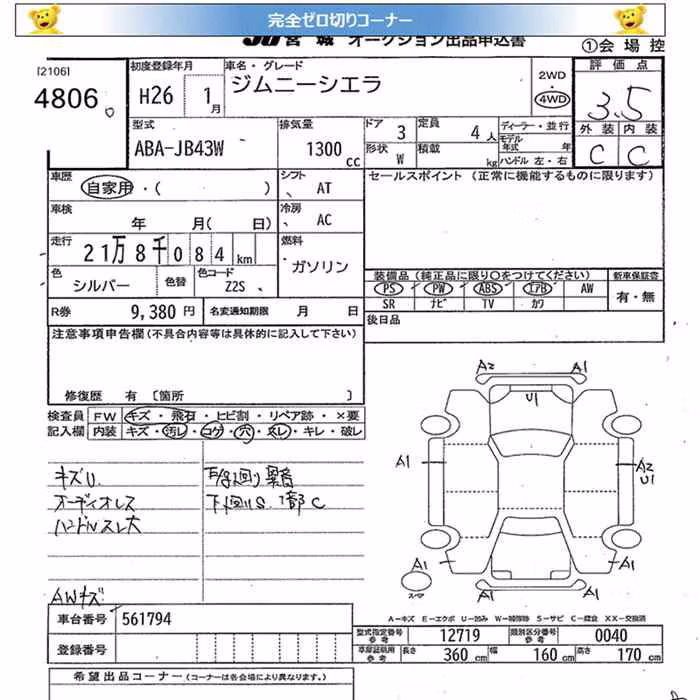 完全ゼロ切りコーナー
JU 宮城 オークション出品申込書
①会 場 控
[2106]
4806
初度登録年月
H26 1月
車名・グレード
ジムニーシエラ
2WD
・
4WD
評 価 点
3.5
外 装 内 装
C C
型式
ABA-JB43W
排気量
1300 cc
ドア 3
形状 W
定員 4人
積載 kg
ディーラー・並行
モデル年式 年
ハンドル 左・右
車歴
自家用・( )
シフト AT
セールスポイント (正常に機能するものに限ります)
車検 年 月( 日)
冷房 AC
走行
21万8千084km
燃料
ガソリン
色 シルバー
色替
色コード Z2S
装備品 (純正品に限り○をつけてください)
新車保証書
PS PW ABS エアB AW
有・無
SR ナビ TV カワ
R券 9,380円
名変通知期限 月 日
後日品
注意事項申告欄 (不具合内容等は具体的に記入して下さい)
修復歴 有 〔箇所 〕
検査員 FW キズ・飛石・ヒビ割・リペア跡・×要
記入欄 内装 キズ・汚レ・コゲ・穴・スレ・キレ・破レ
キズU.
オーディオレス
ハンドルスレ大
下廻りS. 1部C
AWキズ
A2 A1
U1
A1
A2
U1
A1 A1
A1
スペア
A-キズ E-エクボ U-凹み W-補修跡 S-サビ C-腐食 XX-交換済
車台番号 561794
登録番号
型式指定番号参考 12719
類別区分番号参考 0040
車庫証明用参考 長さ 360cm 幅 160cm 高さ 170cm
希望出品コーナー (コーナーは各会場により異なります。)